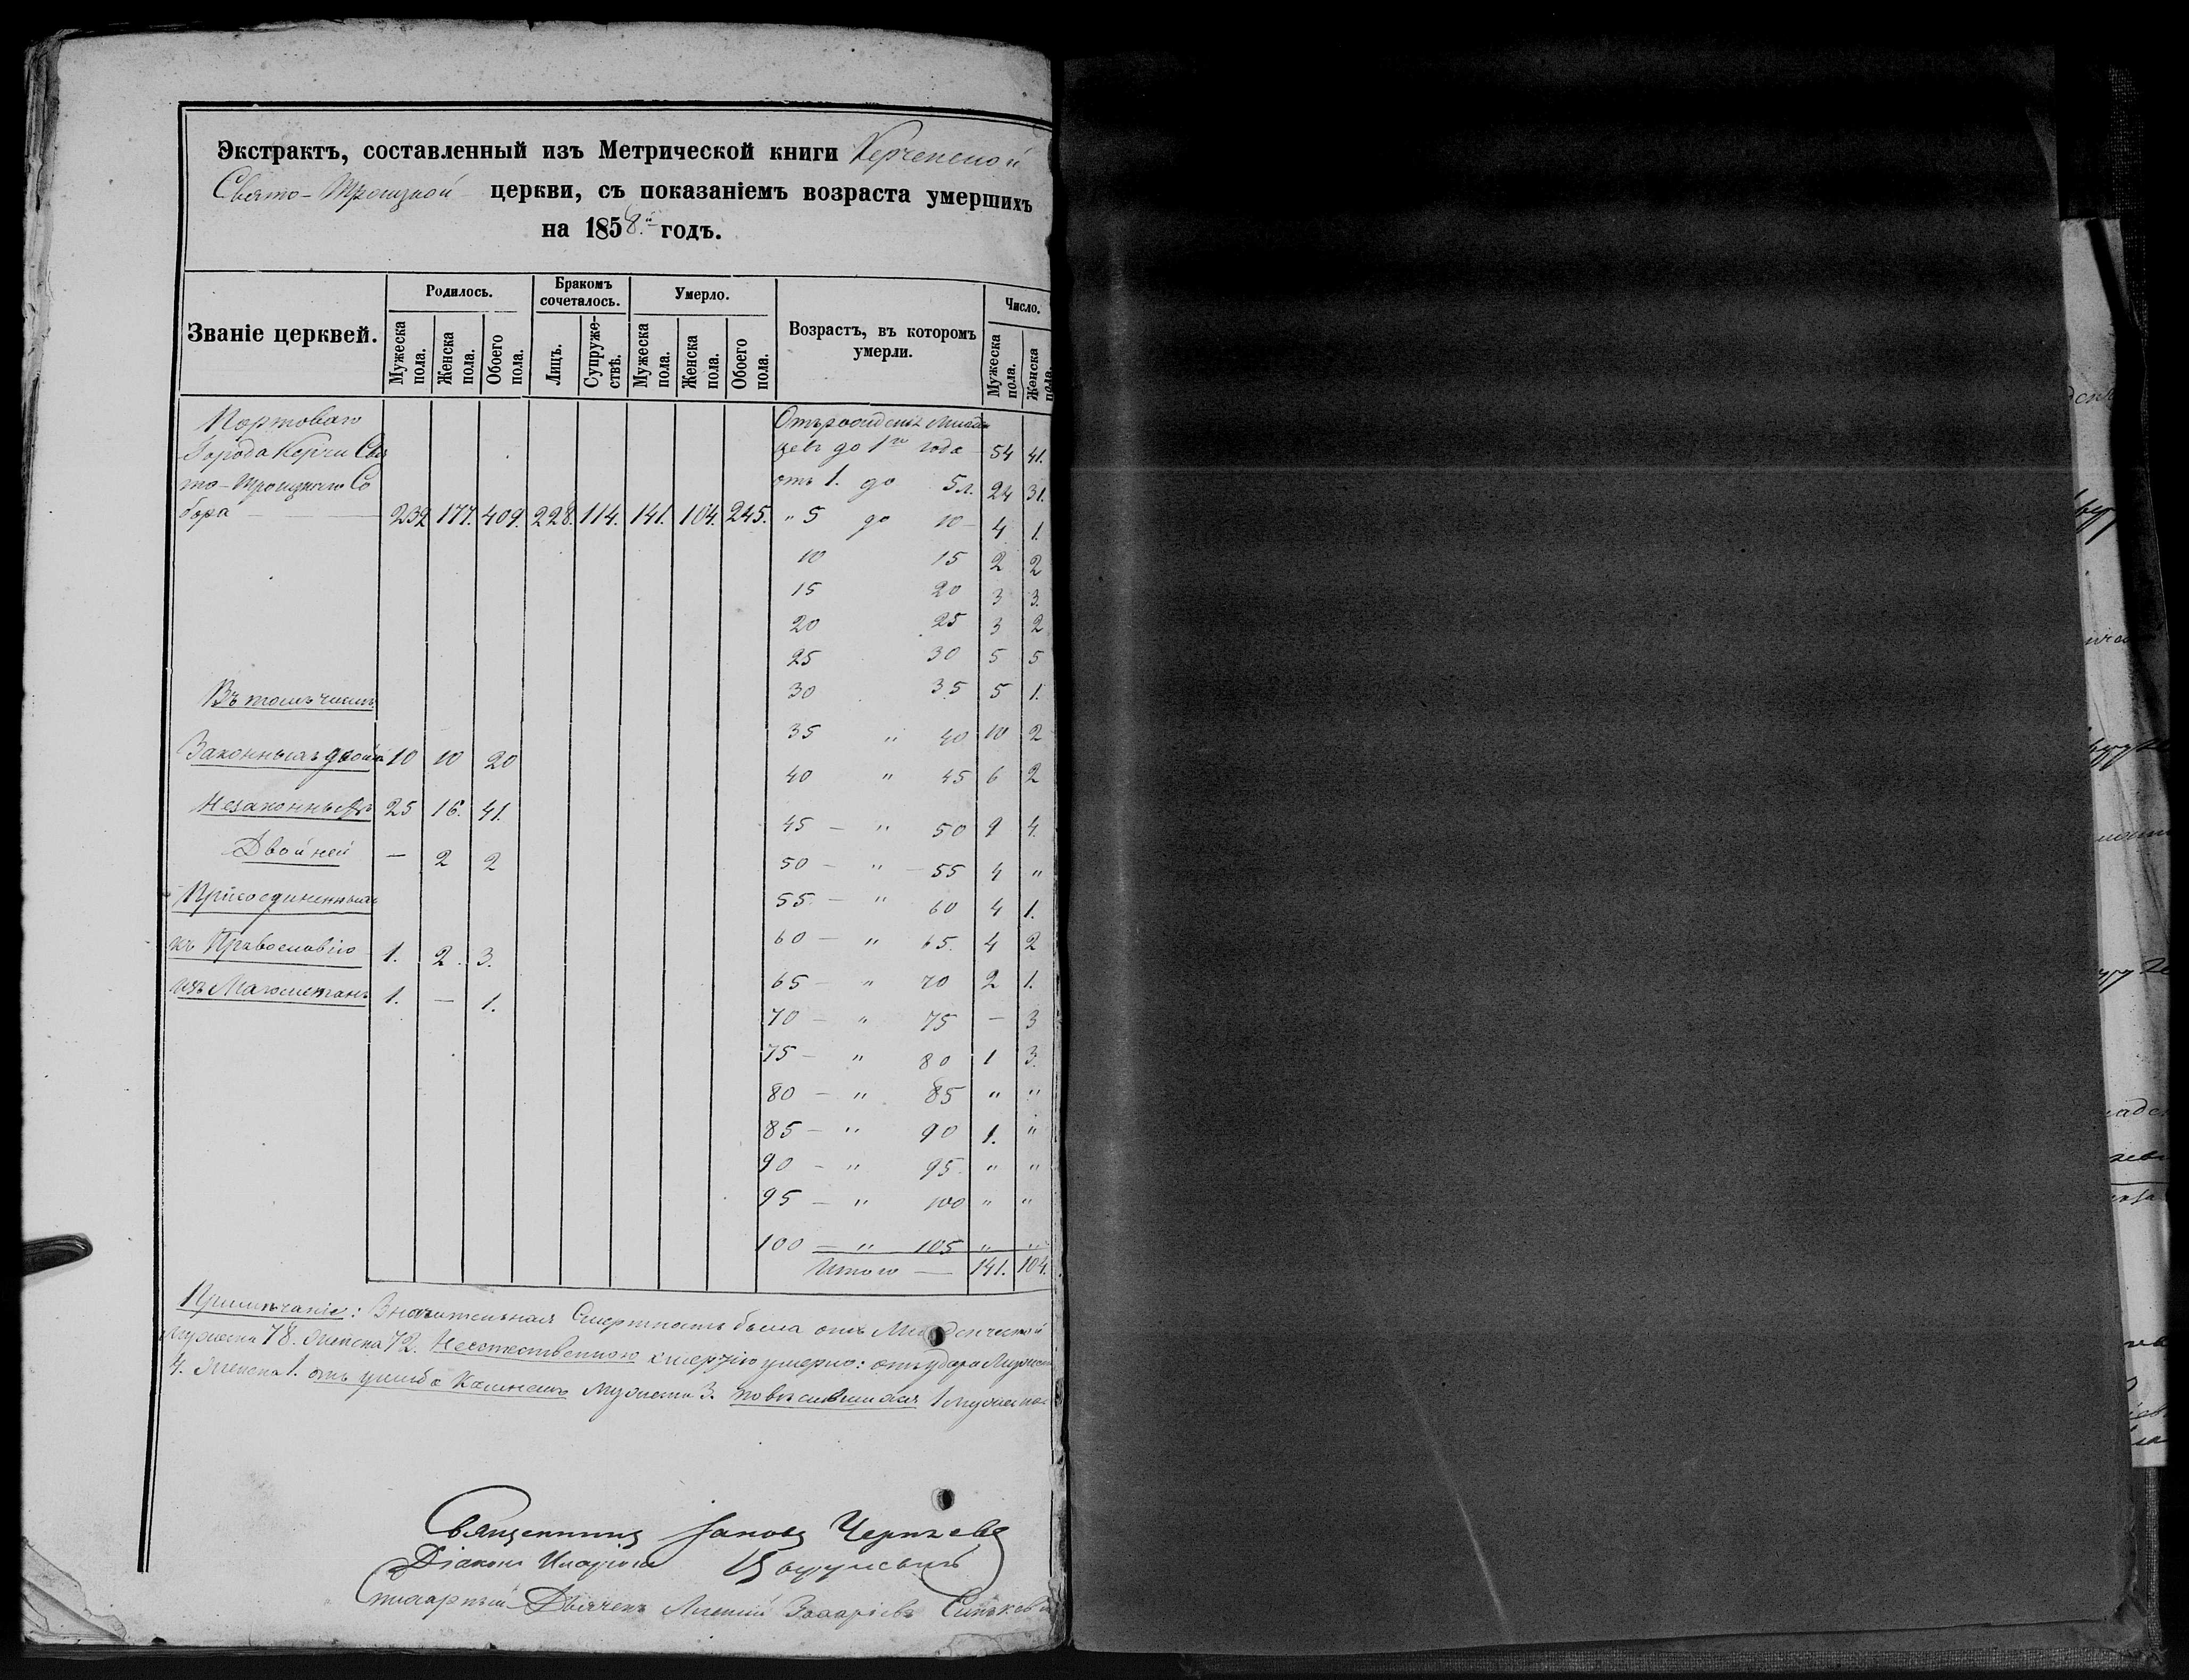 Экстрактъ, составленный изъ Метрической книги Керченской
Свято-Троицкой церкви, съ показаніемъ возраста умершихъ
на 1858й годъ.
Званіе церквей. Родилось. Бракомъ сочеталось. Умерло. Возрастъ, въ которомъ умерли. Число.
Мужеска пола. Женска пола. Обоего пола. Лицъ. Супружествъ. Мужеска пола. Женска пола. Обоего пола. Мужеска пола. Женска пола.
Портоваго Отъ рожденія Младен
Города Керчи Свя цевъ до 1го года 54 41.
то-Троицкаго Со отъ 1. до 5 л. 24 31.
бора 232 177. 409. 228. 114. 141. 104. 245. " 5 до 10 4 1.
10 15 2 2
15 20 3 3.
20 25 3 2
25 30 5 5
Въ томъ числѣ 30 35 5 1.
35 " 40 10 2
Законныхъ 10 10 20
40 " 45 6 2
Незаконныхъ 25 16. 41.
45 — " 50 9 4.
Двойней — 2 2
50 — " 55 4 "
Присоединенныхъ 55 — " 60 4 1.
къ Православію 1. 2. 3.
60 — " 65. 4 2
изъ Магометанъ 1. — 1.
65 — " 70 2 1.
70 — " 75 — 3
75 — " 80 1 3.
80 — " 85 " "
85 — " 90 1. "
90 — " 95 " "
95 — " 100 " "
100 — " 105 " "
Итого — 141. 104.
Примѣчаніе: Значительная Смертность была отъ Младенческой
Мужеска 78. Женска 72. Неестественною смертію умерло: отъ удара Мужеска
4. Женска 1. отъ ушиба Камнемъ Мужеска 3. повѣсившихся 1 мужеска
Священникъ Іаковъ Черняевъ
Діаконъ Иларіонъ
Стихарный Дьячекъ Захаріевъ